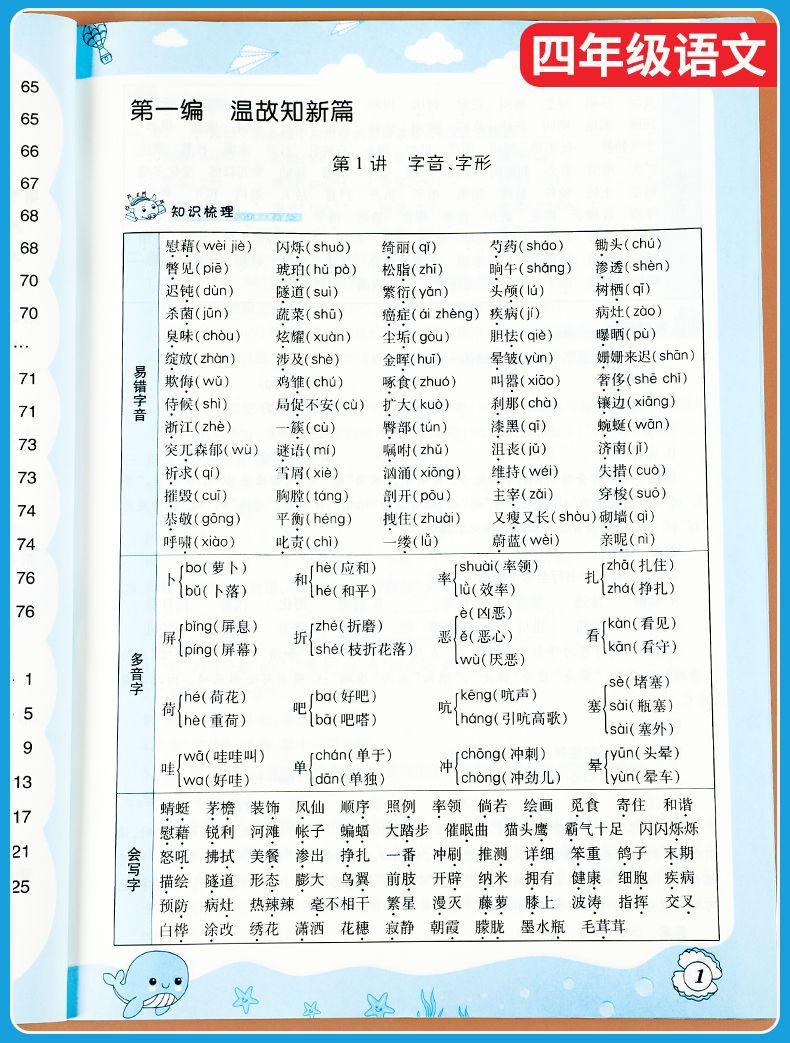 四年级语文
65
65
66
67
68
68
70
70
…
71
71
73
73
74
74
76
76
1
5
9
13
17
21
25
第一编 温故知新篇
第1讲 字音、字形
知识梳理
易错字音
慰藉(wèi jiè) 闪烁(shuò) 绮丽(qǐ) 芍药(sháo) 锄头(chú)
瞥见(piē) 琥珀(hǔ pò) 松脂(zhī) 晌午(shǎng) 渗透(shèn)
迟钝(dùn) 隧道(suì) 繁衍(yǎn) 头颅(lú) 树栖(qī)
杀菌(jūn) 蔬菜(shū) 癌症(ái zhèng) 疾病(jí) 病灶(zào)
臭味(chòu) 炫耀(xuàn) 尘垢(gòu) 胆怯(qiè) 曝晒(pù)
绽放(zhàn) 涉及(shè) 金晖(huī) 晕皱(yùn) 姗姗来迟(shān)
欺侮(wǔ) 鸡雏(chú) 啄食(zhuó) 叫嚣(xiāo) 奢侈(shē chǐ)
侍候(shì) 局促不安(cù) 扩大(kuò) 刹那(chà) 镶边(xiāng)
浙江(zhè) 一簇(cù) 臀部(tún) 漆黑(qī) 蜿蜒(wān)
突兀森郁(wù) 谜语(mí) 嘱咐(zhǔ) 沮丧(jǔ) 济南(jǐ)
祈求(qí) 雪屑(xiè) 汹涌(xiōng) 维持(wéi) 失措(cuò)
摧毁(cuī) 胸膛(táng) 剖开(pōu) 主宰(zǎi) 穿梭(suō)
恭敬(gōng) 平衡(héng) 拽住(zhuài) 又瘦又长(shòu) 砌墙(qì)
呼啸(xiào) 叱责(chì) 一缕(lǚ) 蔚蓝(wèi) 亲昵(nì)
多音字
卜 bo(萝卜) bǔ(卜落) 和 hè(应和) hé(和平) 率 shuài(率领) lǜ(效率) 扎 zhā(扎住) zhá(挣扎)
屏 bǐng(屏息) píng(屏幕) 折 zhé(折磨) shé(枝折花落) 恶 è(凶恶) ě(恶心) wù(厌恶) 看 kàn(看见) kān(看守)
荷 hé(荷花) hè(重荷) 吧 ba(好吧) bā(吧嗒) 吭 kēng(吭声) háng(引吭高歌) 塞 sè(堵塞) sāi(瓶塞) sài(塞外)
哇 wā(哇哇叫) wa(好哇) 单 chán(单于) dān(单独) 冲 chōng(冲刺) chòng(冲劲儿) 晕 yūn(头晕) yùn(晕车)
会写字
蜻蜓 茅檐 装饰 凤仙 顺序 照例 率领 倘若 绘画 觅食 寄住 和谐
慰藉 锐利 河滩 帐子 蝙蝠 大踏步 催眠曲 猫头鹰 霸气十足 闪闪烁烁
怒吼 拂拭 美餐 渗出 挣扎 一番 冲刷 推测 详细 笨重 鸽子 末期
描绘 隧道 形态 膨大 鸟翼 前肢 开辟 纳米 拥有 健康 细胞 疾病
预防 病灶 热辣辣 毫不相干 繁星 漫灭 藤萝 膝上 波涛 指挥 交叉
白桦 涂改 绣花 潇洒 花穗 寂静 朝霞 朦胧 墨水瓶 毛茸茸
1